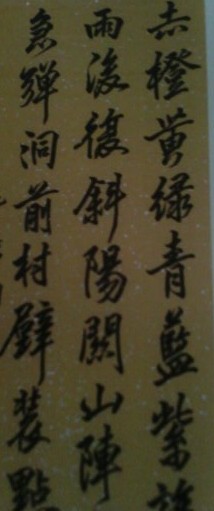 赤橙黄緑青藍紫
雨後復斜陽關山陣
急彈洞前村壁裝點